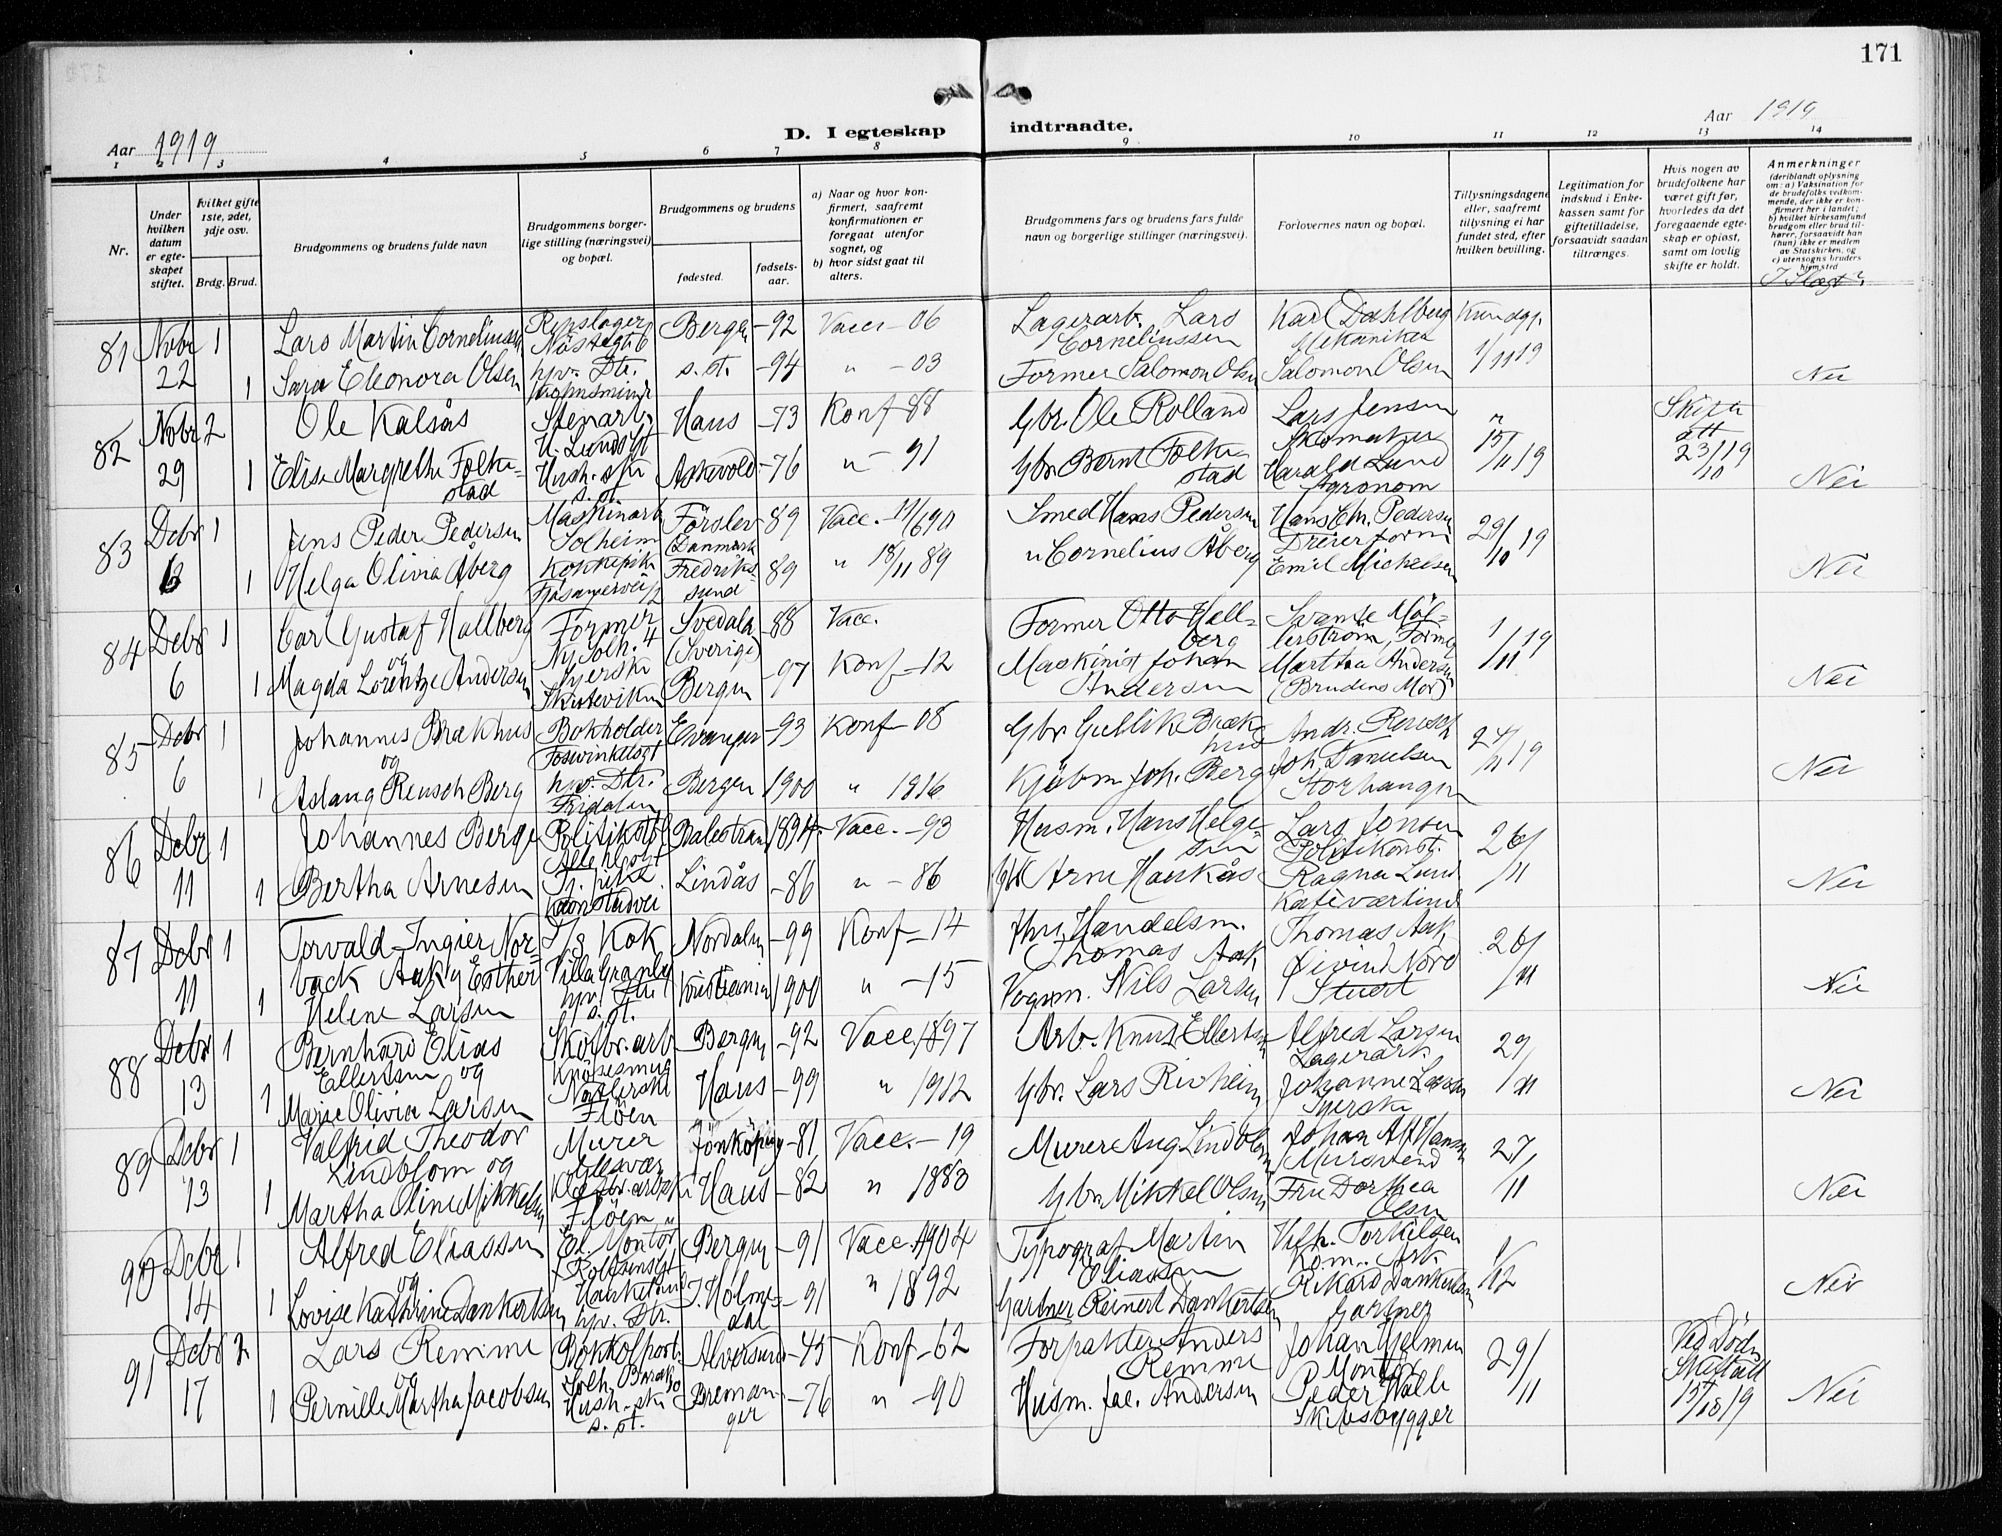 171
Aar 1919
D. I egteskap indtraadte.
Aar 1919
1 2 3 4 5 6 7 8 9 10 11 12 13 14
Nr.
Under hvilken datum er egteskapet stiftet.
Hvilket gifte 1ste, 2det, 3dje osv.
Brdg. Brud.
Brudgommens og brudens fulde navn
Brudgommens borgerlige stilling (næringsvei) og bopæl.
Brudgommens og brudens
fødested.
fødselsaar.
a) Naar og hvor konfirmert, saafremt konfirmationen er foregaat utenfor sognet, og
b) hvor sidst gaat til alters.
Brudgommens fars og brudens fars fulde navn og borgerlige stillinger (næringsvei).
Forlovernes navn og bopæl.
Tillysningsdagene eller, saafremt tillysning ei har fundet sted, efter hvilken bevilling.
Legitimation for indskud i Enkekassen samt for giftetilladelse, forsaavidt saadan tiltrænges.
Hvis nogen av brudefolkene har været gift før, hvorledes da det foregaaende egteskap er opløst, samt om lovlig skifte er holdt.
Anmerkninger
(deriblandt oplysning om: a) Vaksination for de brudefolks vedkommende, der ikke er konfirmert her i landet; b) hvilket kirkesamfund brudgom eller brud tilhører, forsaavidt han (hun) ikke er medlem av Statskirken, og c) utensogns bruders hjemsted
I Slægt?
81 Novbr 1 Lars Martin Corneliussen Repslager Bergen -92 Vacc -06 Lagerarb. Lars Corneliussen Karl Dahlberg Mekaniker Kundgj.
22 1 Sara Eleonora Olsen hjv. Dtr. s.st. -94 " -03 Former Salomon Olsen Salomon Olsen 1/11 19 Nei
82 Novbr 2 Ole Kalsås Stenarb. Haus -73 Konf -88 Gbr Ole Rolland Lars Jensen Skomaker " Skifte att 23/10 19
29 1 Elise Margrethe Folkestad Hush.ske s.st. Askevold -76 " -91 Gbr Bernt Folkestad Harald Lund Agronom 15/11 19 Nei
83 Debr 1 Jens Peder Pedersen Maskinarb Solheim Förslev (Danmark -89 Vacc. 11/6 90 Smed Hans Pedersen Hans Chr. Pedersen 29/10 19
6 1 Helga Olivia Åberg Kokkepike Fredrikssund 89 " 18/11 89 " Cornelius Åberg Emil Mickelsen Nei
84 Debr 1 Carl Gustaf Hallberg Former Svedala (Sverige) -88 Vacc. Former Otto Hallberg 1/11 19
6 og 1 Magda Lorentze Andersen Syerske Skuteviken Bergen -97 Konf -12 Maskinist Johan Andersen Martha Andersen (Brudens Mor) Nei
85 Debr 1 Johannes Brækhus Bokholder Evanger -93 Konf -08 Gbr Gullik Brækhus Andr. Reusch 24/11 19
6 og 1 Aslaug Reusch Berg hjv. Dtr. Fridalen Bergen 1900 " 1916 Kjøbm Joh. Berg Joh Danielsen Storhaugen Nei
86 Debr 1 Johannes Berge Balestrand 1894 Vacc. -93 Husm. Hans Helgesen Lars Jonsen Politikonst. 26/11
11 1 Bertha Arnesen Tj. pike Lindås -86 " -86 Gbr Arne Haukås Ragna Lund Nei
87 Debr 1 Torvald Ingier Norback Aak og Kok Villa Granly Nordalen -99 Konf -14 Handelsm. Thomas Aak Thomas Aak 26/11
11 1 Esther Helene Larsen hjv. Dtr s.st. Kristiania 1900 " -15 Vognm. Nils Larsen Øivind Nord Stuert Nei
88 Debr 1 Bernhard Elias Ellertsen og Skofbr. arb Bergen -92 Vacc. 1897 Arb. Knut Ellertsen Alfred Larsen Lagerarb 29/11
13 1 Marie Olivia Larsen Fløen Haus -99 " 1912 Gbr. Lars Rivheim Johanne Larsen Syerske Nei
89 Debr 1 Valfrid Theodor Lindblom og Murer Jönköping -81 Vacc. -19 Murer Aug Lindblom Johan Alf Hansen Mursvend 27/11
13 1 Martha Oline Mikkelsen Fløen Haus -82 " 1883 Gbr Mikkel Olsen Fru Dorthea Olsen Nei
90 Debr 1 Alfred Eliassen El. Montør Bergen -91 Vacc 1904 Typograf Martin Eliassen Vilh. Torkelsen Kom. Arb. 1/12
14 og 1 Lovise Kathrine Dankertsen hjv. Dtr. I. Holmedal -91 " 1892 Gartner Reinert Dankertsen Rikard Dankertsen Gartner Nei
91 Debr 2 Lars Remme Bokkolport. Alversund -45 Konf -62 Forpakter Anders Remme Johan Hjelmen Montør 29/11 Ved Død
17 og 1 Pernille Martha Jacobsen Hush. ske s. st. Bremanger -76 " -90 Husm. Jac. Andersen Peder Valle Skibsbygger 15/10 19 Nei